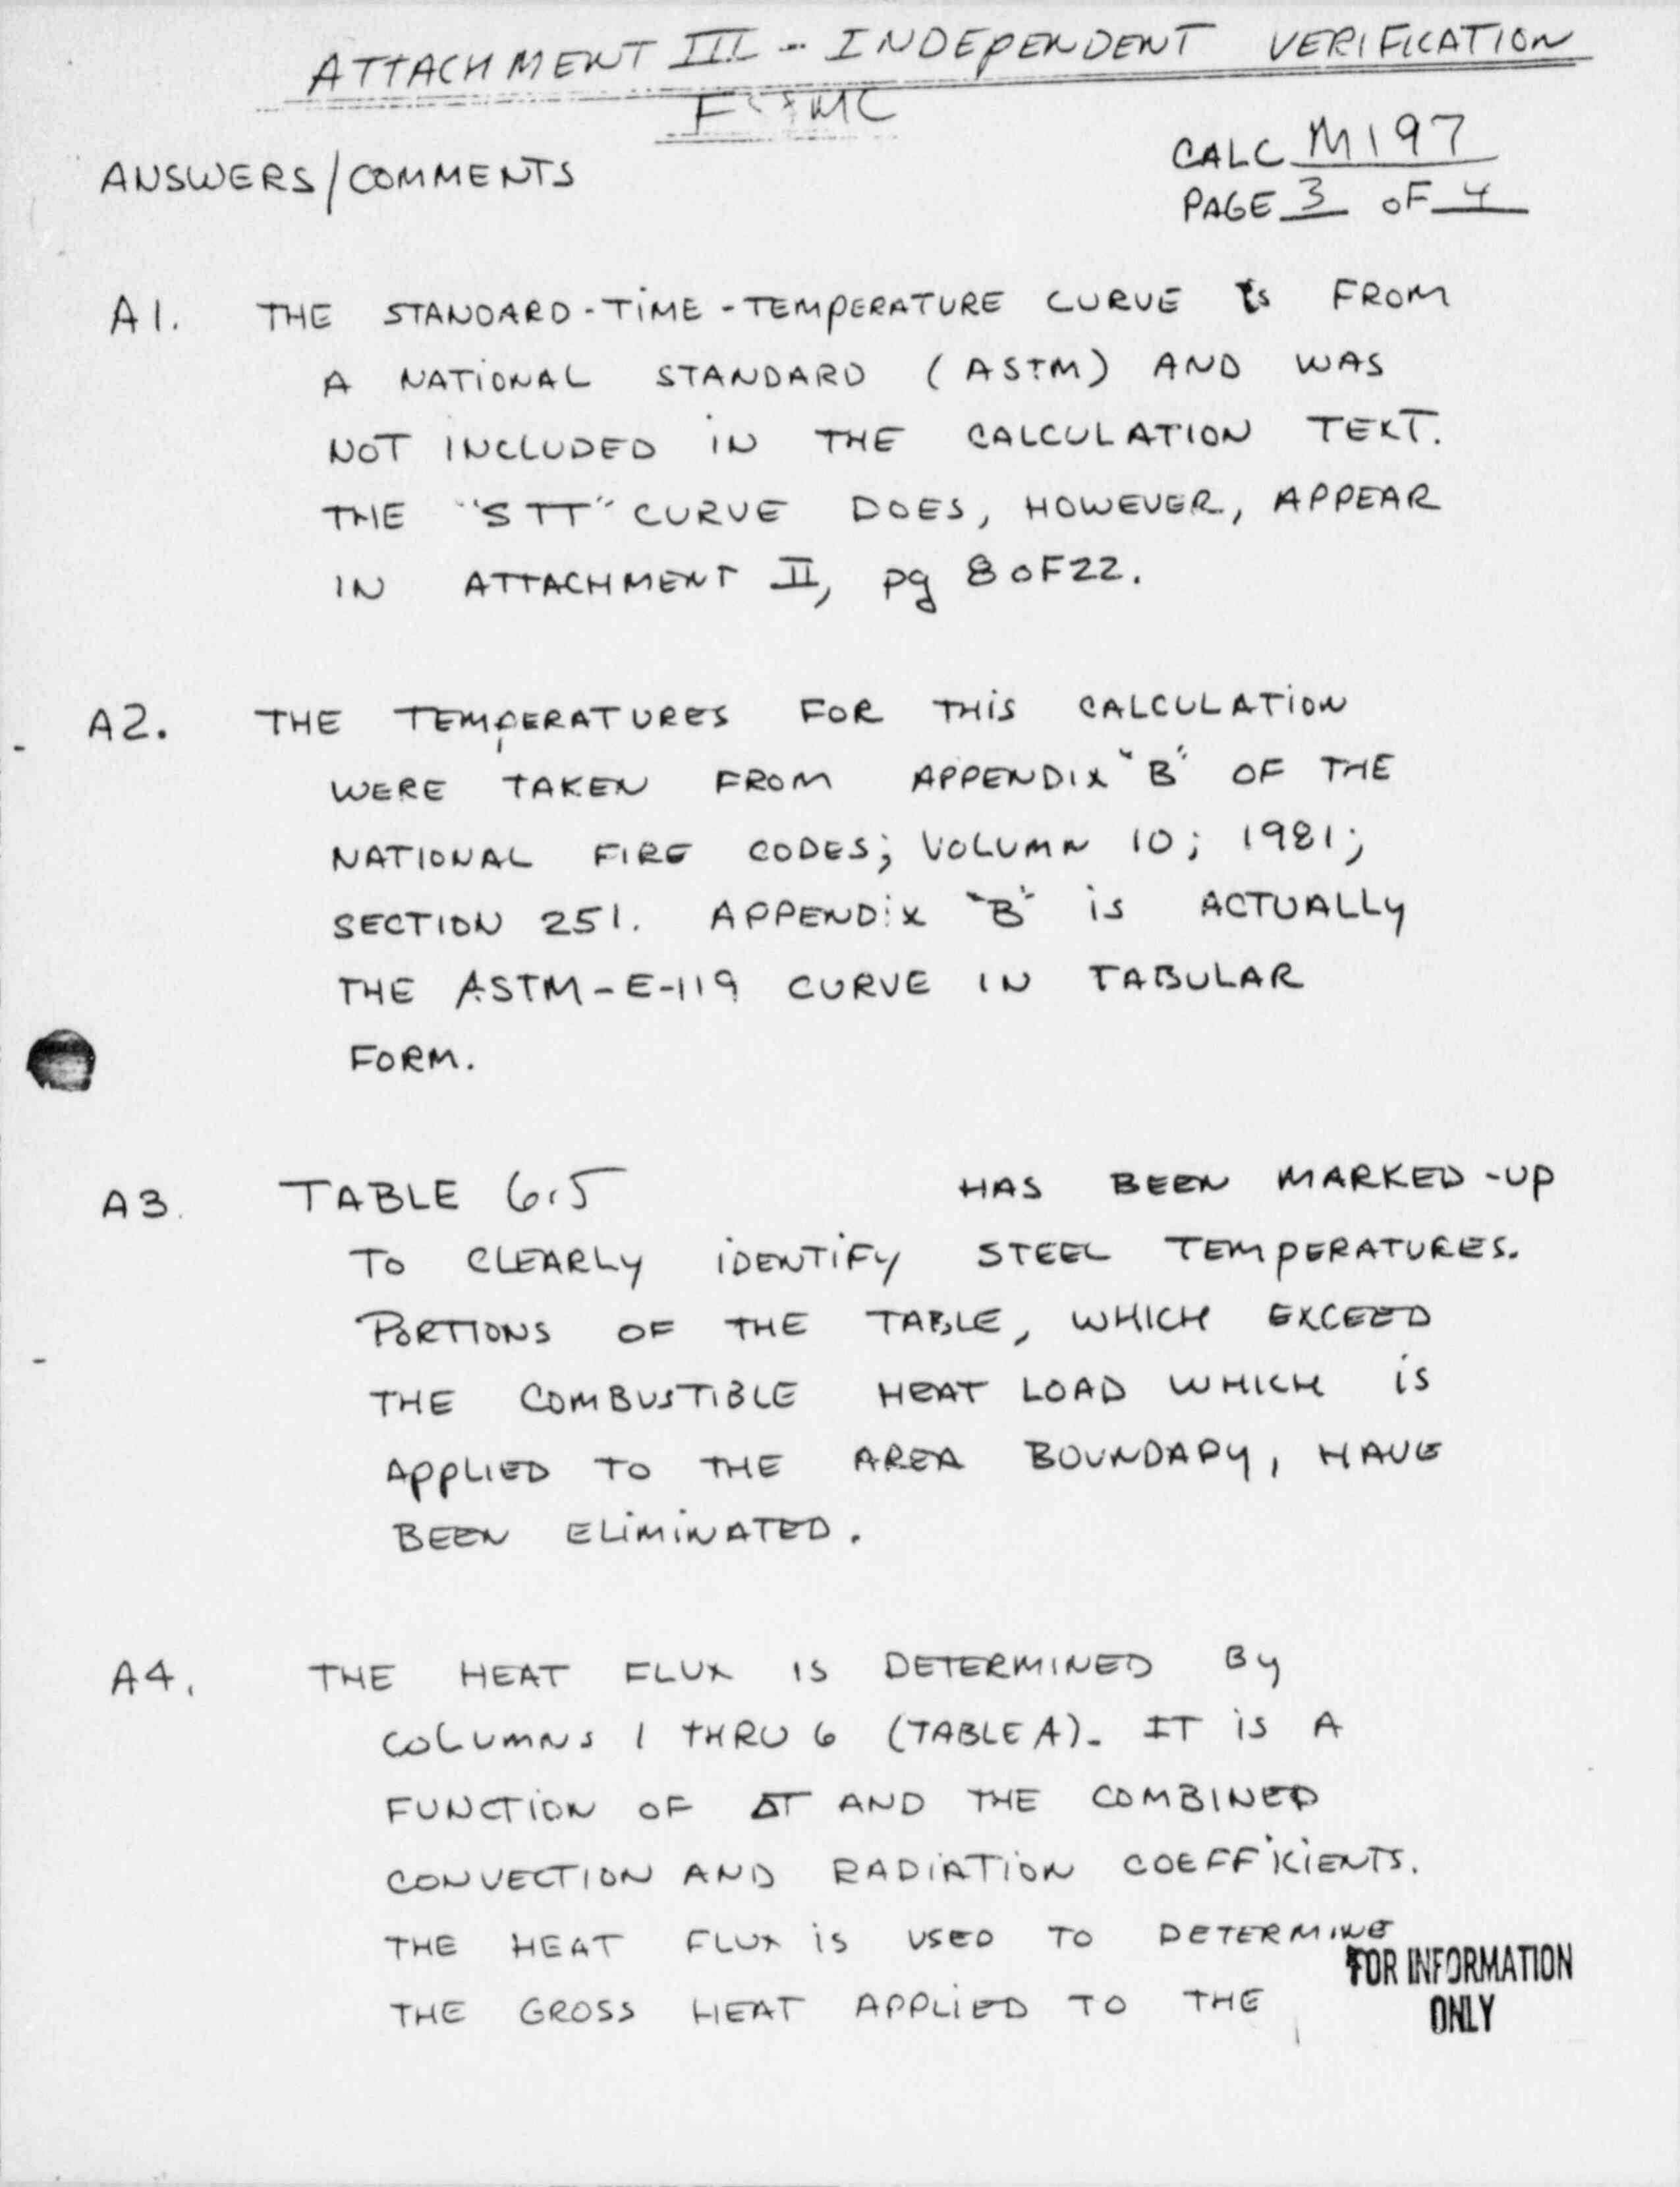 ATTACHMENT III - INDEPENDENT VERIFICATION
ANSWERS/COMMENTS
CALC M197
PAGE 3 OF 4
A1. THE STANDARD-TIME-TEMPERATURE CURVE is FROM
A NATIONAL STANDARD (ASTM) AND WAS
NOT INCLUDED IN THE CALCULATION TEXT.
THE "STT" CURVE DOES, HOWEVER, APPEAR
IN ATTACHMENT II, pg 8 OF 22.
A2. THE TEMPERATURES FOR THIS CALCULATION
WERE TAKEN FROM APPENDIX "B" OF THE
NATIONAL FIRE CODES; VOLUMN 10; 1981;
SECTION 251. APPENDIX "B" is ACTUALLY
THE ASTM-E-119 CURVE IN TABULAR
FORM.
A3. TABLE 6.5 HAS BEEN MARKED-UP
TO CLEARLY IDENTIFY STEEL TEMPERATURES.
PORTIONS OF THE TABLE, WHICH EXCEED
THE COMBUSTIBLE HEAT LOAD WHICH is
APPLIED TO THE AREA BOUNDARY, HAVE
BEEN ELIMINATED.
A4. THE HEAT FLUX IS DETERMINED By
COLUMNS 1 THRU 6 (TABLE A). IT is A
FUNCTION OF ΔT AND THE COMBINED
CONVECTION AND RADIATION COEFFICIENTS.
THE HEAT FLUX is USED TO DETERMINE
THE GROSS HEAT APPLIED TO THE
FOR INFORMATION
ONLY